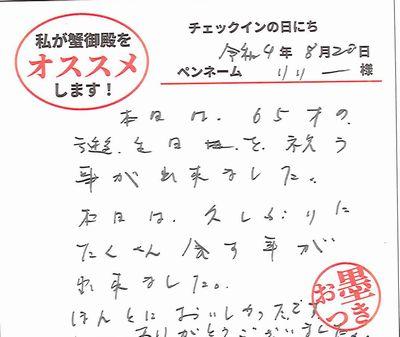 私が蟹御殿を
オススメ
します！
チェックインの日にち
令和4年 8月20日
ペンネーム リリー 様
本日は、65才の
誕生日を祝う
事が出来ました。
本日は、久しぶりに
たくさん 食す事が
出来ました。
ほんとにおいしかったです
ありがとうございました。
墨
おつき